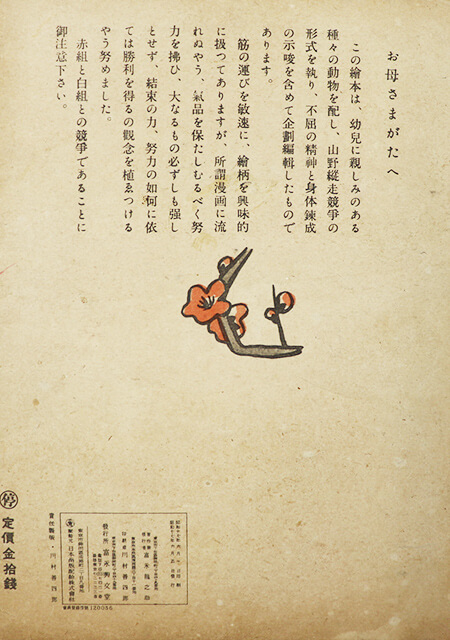 お母さまがたへ
この繪本は、幼兒に親しみのある
種々の動物を配し、山野縱走競爭の
形式を執り、不屈の精神と身体錬成
の示唆を含めて企劃編輯したもので
あります。
筋の運びを敏速に、繪柄を興味的
に扱つてありますが、所謂漫画に流
れぬやう、氣品を保たしむるべく努
力を拂ひ、大なるもの必ずしも强し
とせず、結束の力、努力の如何に依
ては勝利を得るの觀念を植ゑつける
やう努めました。
赤組と白組との競爭であることに
御注意下さい。
發行所
日本出版配給株式會社
責任製版・川村善四郎
停 定價金拾錢
120056